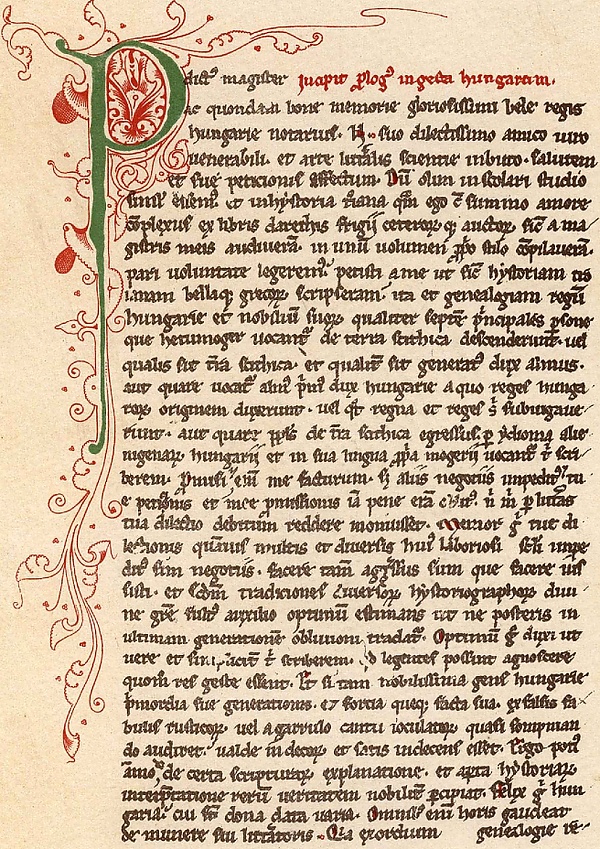 P dict magister Incipit plog' in gesta hungarum.
ac quondam bone memorie gloriosissimi bele regis
hungarie notarius. N. suo dilectissimo amico uiro
uenerabili. et arte litteralis scientie inbuto. salutem
et sue peticionis affectum. Dum olim in scolari studio
simul essem'. et in hystoria t'iana qm ego summo amore
cplexus ex libris darethis frigii ceterorq; auctor. sic a ma
gistris meis audiuera. in unu uolumen pprio stilo cpilauera.
pari uoluntate legerem'. petisti a me ut sic hystoriam tro
ianam bellaq; grecor. scripseram. ita et genealogiam regu
hungarie et nobiliu suor. qualiter septe pncipales psone
que hetumoger uocant de terra scithica descenderunt. uel
qualis sit tra scithica. et qualit sit generat dux almus.
aut quare uocat alm' pm' dux hungarie a quo reges hunga
ror. originem duxerunt. uel qt regna et reges s subiugaue
runt. aut quare ppls de tra scithica egressus p ydioma alie
nigenar. hungarii et in sua lingua ppa mogerii uocant t scri
berem. Promisi eni me facturum. sz aliis negotiis impedit' tu
e peticionis et mee pmissionis ia pene era obilit'. n m p litteras
tua dilectio debitum reddere monuisset. Memor g tue di
lectionis quauis multis et diuersis hui' laboriosi scli impe
dit' sim negotiis. facere tam aggssus sum que facere ius
sisti. et scdm traditiones diuersor. hystoriographor. diui
ne gre fult' auxilio optimu estimans ut ne posteris in
ultimam generatione obliuioni tradat. Optimu g duxi ut
uere et simplicit t scriberem. qd legentes possint agnoscere
quom res geste essent. Et si tam nobilissima gens hungarie
pmordia sue generationis. et fortia queq; facta sua. ex falsis fa
bulis rusticor. uel a garrulo cantu ioculator. quasi sompnian
do audiret. ualde indecor. et satis indecens esset. Ergo poti'
amo, de certa scripturar. explanatione. et apta hystoriar.
interptatione reru ueritatem nobilit pcipiat. Felix g hun
garia. cui st dona data uaria. Omnib' eni horis gaudeat
de munere sui litteratoris. Quia exordium genealogie re-